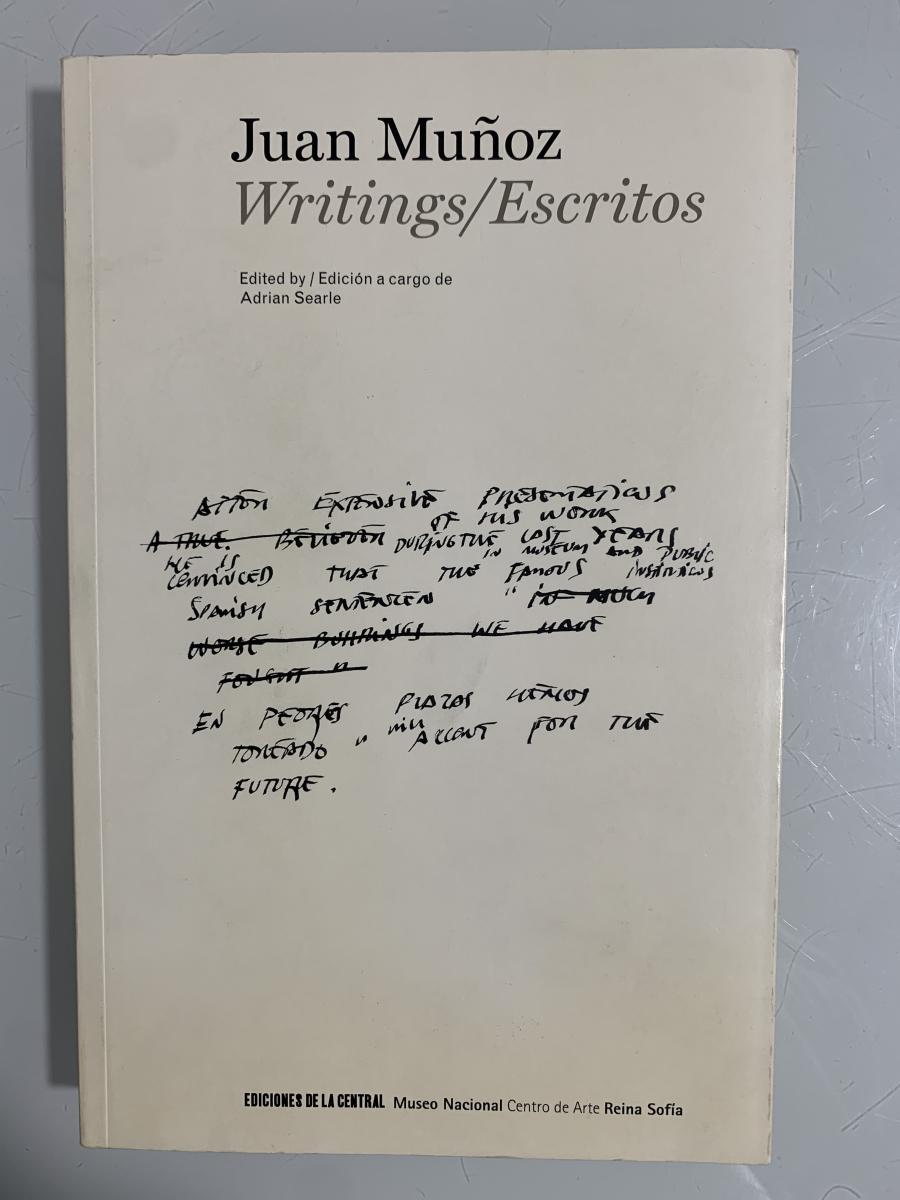 Juan Muñoz
Writings/Escritos
Edited by / Edición a cargo de
Adrian Searle
EXPENSIVE PRESENTATIONS
OF HIS WORK
A TRUE BELIEVER DURING THE LAST YEARS
HE IS IN MUSEUM AND PUBLIC
CONVINCED THAT THE FAMOUS INSTITUTIONS
SPANISH " IN MUCH
WORSE BULLRINGS WE HAVE
FOUGHT "
EN PEORES PLAZAS HEMOS
TOREADO " WILL
FOR THE
FUTURE.
EDICIONES DE LA CENTRAL Museo Nacional Centro de Arte Reina Sofía